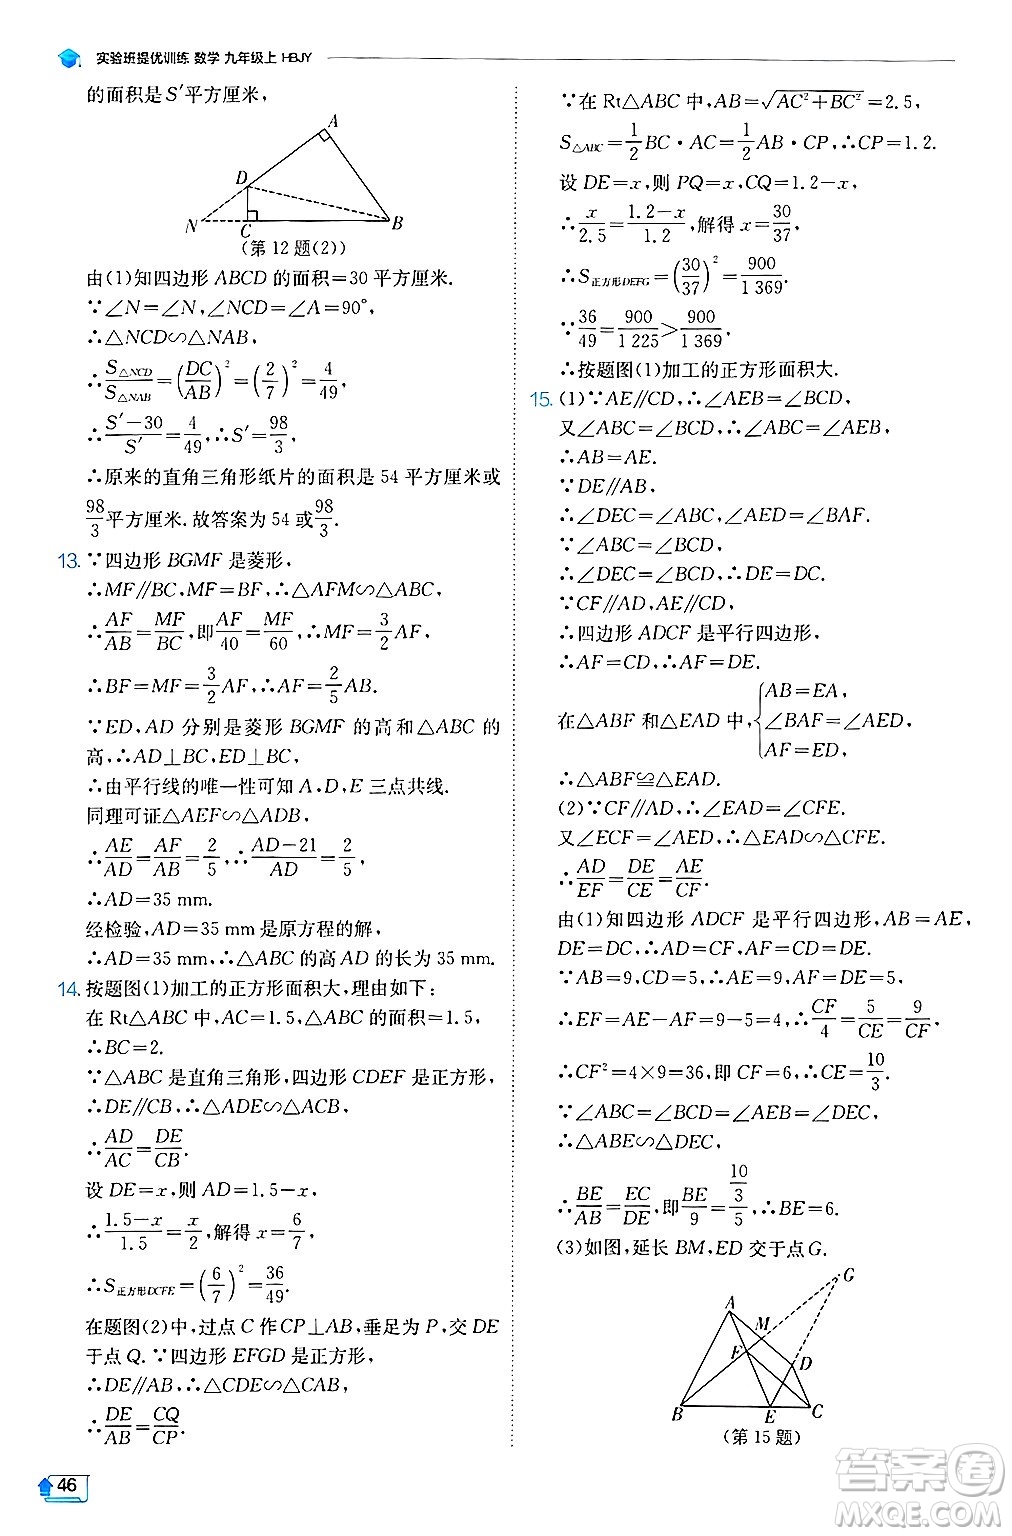 实验班提优训练 数学 九年级上 HBJY
的面积是S′平方厘米,
A
D
N
C
B
(第12题(2))
由(1)知四边形ABCD的面积=30平方厘米.
∵∠N=∠N,∠NCD=∠A=90°,
∴△NCD∽△NAB,
∴S△NCD/S△NAB=(DC/AB)²=(2/7)²=4/49,
∴(S′-30)/S′=4/49,∴S′=98/3,
∴原来的直角三角形纸片的面积是54平方厘米或
98/3平方厘米.故答案为54或98/3.
13. ∵四边形BGMF是菱形,
∴MF//BC,MF=BF,∴△AFM∽△ABC,
∴AF/AB=MF/BC,即AF/40=MF/60,∴MF=3/2AF,
∴BF=MF=3/2AF,∴AF=2/5AB.
∵ED,AD分别是菱形BGMF的高和△ABC的
高,∴AD⊥BC,ED⊥BC,
∴由平行线的唯一性可知A,D,E三点共线.
同理可证△AEF∽△ADB,
∴AE/AD=AF/AB=2/5,∴(AD-21)/AD=2/5,
∴AD=35 mm.
经检验,AD=35 mm是原方程的解,
∴AD=35 mm,∴△ABC的高AD的长为35 mm.
14. 按题图(1)加工的正方形面积大,理由如下:
在Rt△ABC中,AC=1.5,△ABC的面积=1.5,
∴BC=2.
∵△ABC是直角三角形,四边形CDEF是正方形,
∴DE//CB,∴△ADE∽△ACB,
∴AD/AC=DE/CB.
设DE=x,则AD=1.5-x,
∴(1.5-x)/1.5=x/2,解得x=6/7,
∴S正方形DCFE=(6/7)²=36/49.
在题图(2)中,过点C作CP⊥AB,垂足为P,交DE
于点Q.∵四边形EFGD是正方形,
∴DE//AB,∴△CDE∽△CAB,
∴DE/AB=CQ/CP.
46
∵在Rt△ABC中,AB=√(AC²+BC²)=2.5,
S△ABC=1/2BC·AC=1/2AB·CP,∴CP=1.2.
设DE=x,则PQ=x,CQ=1.2-x,
∴x/2.5=(1.2-x)/1.2,解得x=30/37,
∴S正方形DEFG=(30/37)²=900/1 369.
∵36/49=900/1 225>900/1 369,
∴按题图(1)加工的正方形面积大.
15. (1)∵AE//CD,∴∠AEB=∠BCD,
又∠ABC=∠BCD,∴∠ABC=∠AEB,
∴AB=AE.
∵DE//AB,
∴∠DEC=∠ABC,∠AED=∠BAF.
∵∠ABC=∠BCD,
∴∠DEC=∠BCD,∴DE=DC.
∵CF//AD,AE//CD,
∴四边形ADCF是平行四边形,
∴AF=CD,∴AF=DE.
在△ABF和△EAD中,{AB=EA,
∠BAF=∠AED,
AF=ED,
∴△ABF≌△EAD.
(2)∵CF//AD,∴∠EAD=∠CFE.
又∠ECF=∠AED,∴△EAD∽△CFE.
∴AD/EF=DE/CE=AE/CF.
由(1)知四边形ADCF是平行四边形,AB=AE,
DE=DC,∴AD=CF,AF=CD=DE.
∵AB=9,CD=5,∴AE=9,AF=DE=5,
∴EF=AE-AF=9-5=4,∴CF/4=5/CE=9/CF,
∴CF²=4×9=36,即CF=6,∴CE=10/3.
∵∠ABC=∠BCD=∠AEB=∠DEC,
∴△ABE∽△DEC,
∴BE/AB=EC/DE,即BE/9=(10/3)/5,∴BE=6.
(3)如图,延长BM,ED交于点G.
G
A
M
F
D
B
E
C
(第15题)
答案圈
MXQE.COM